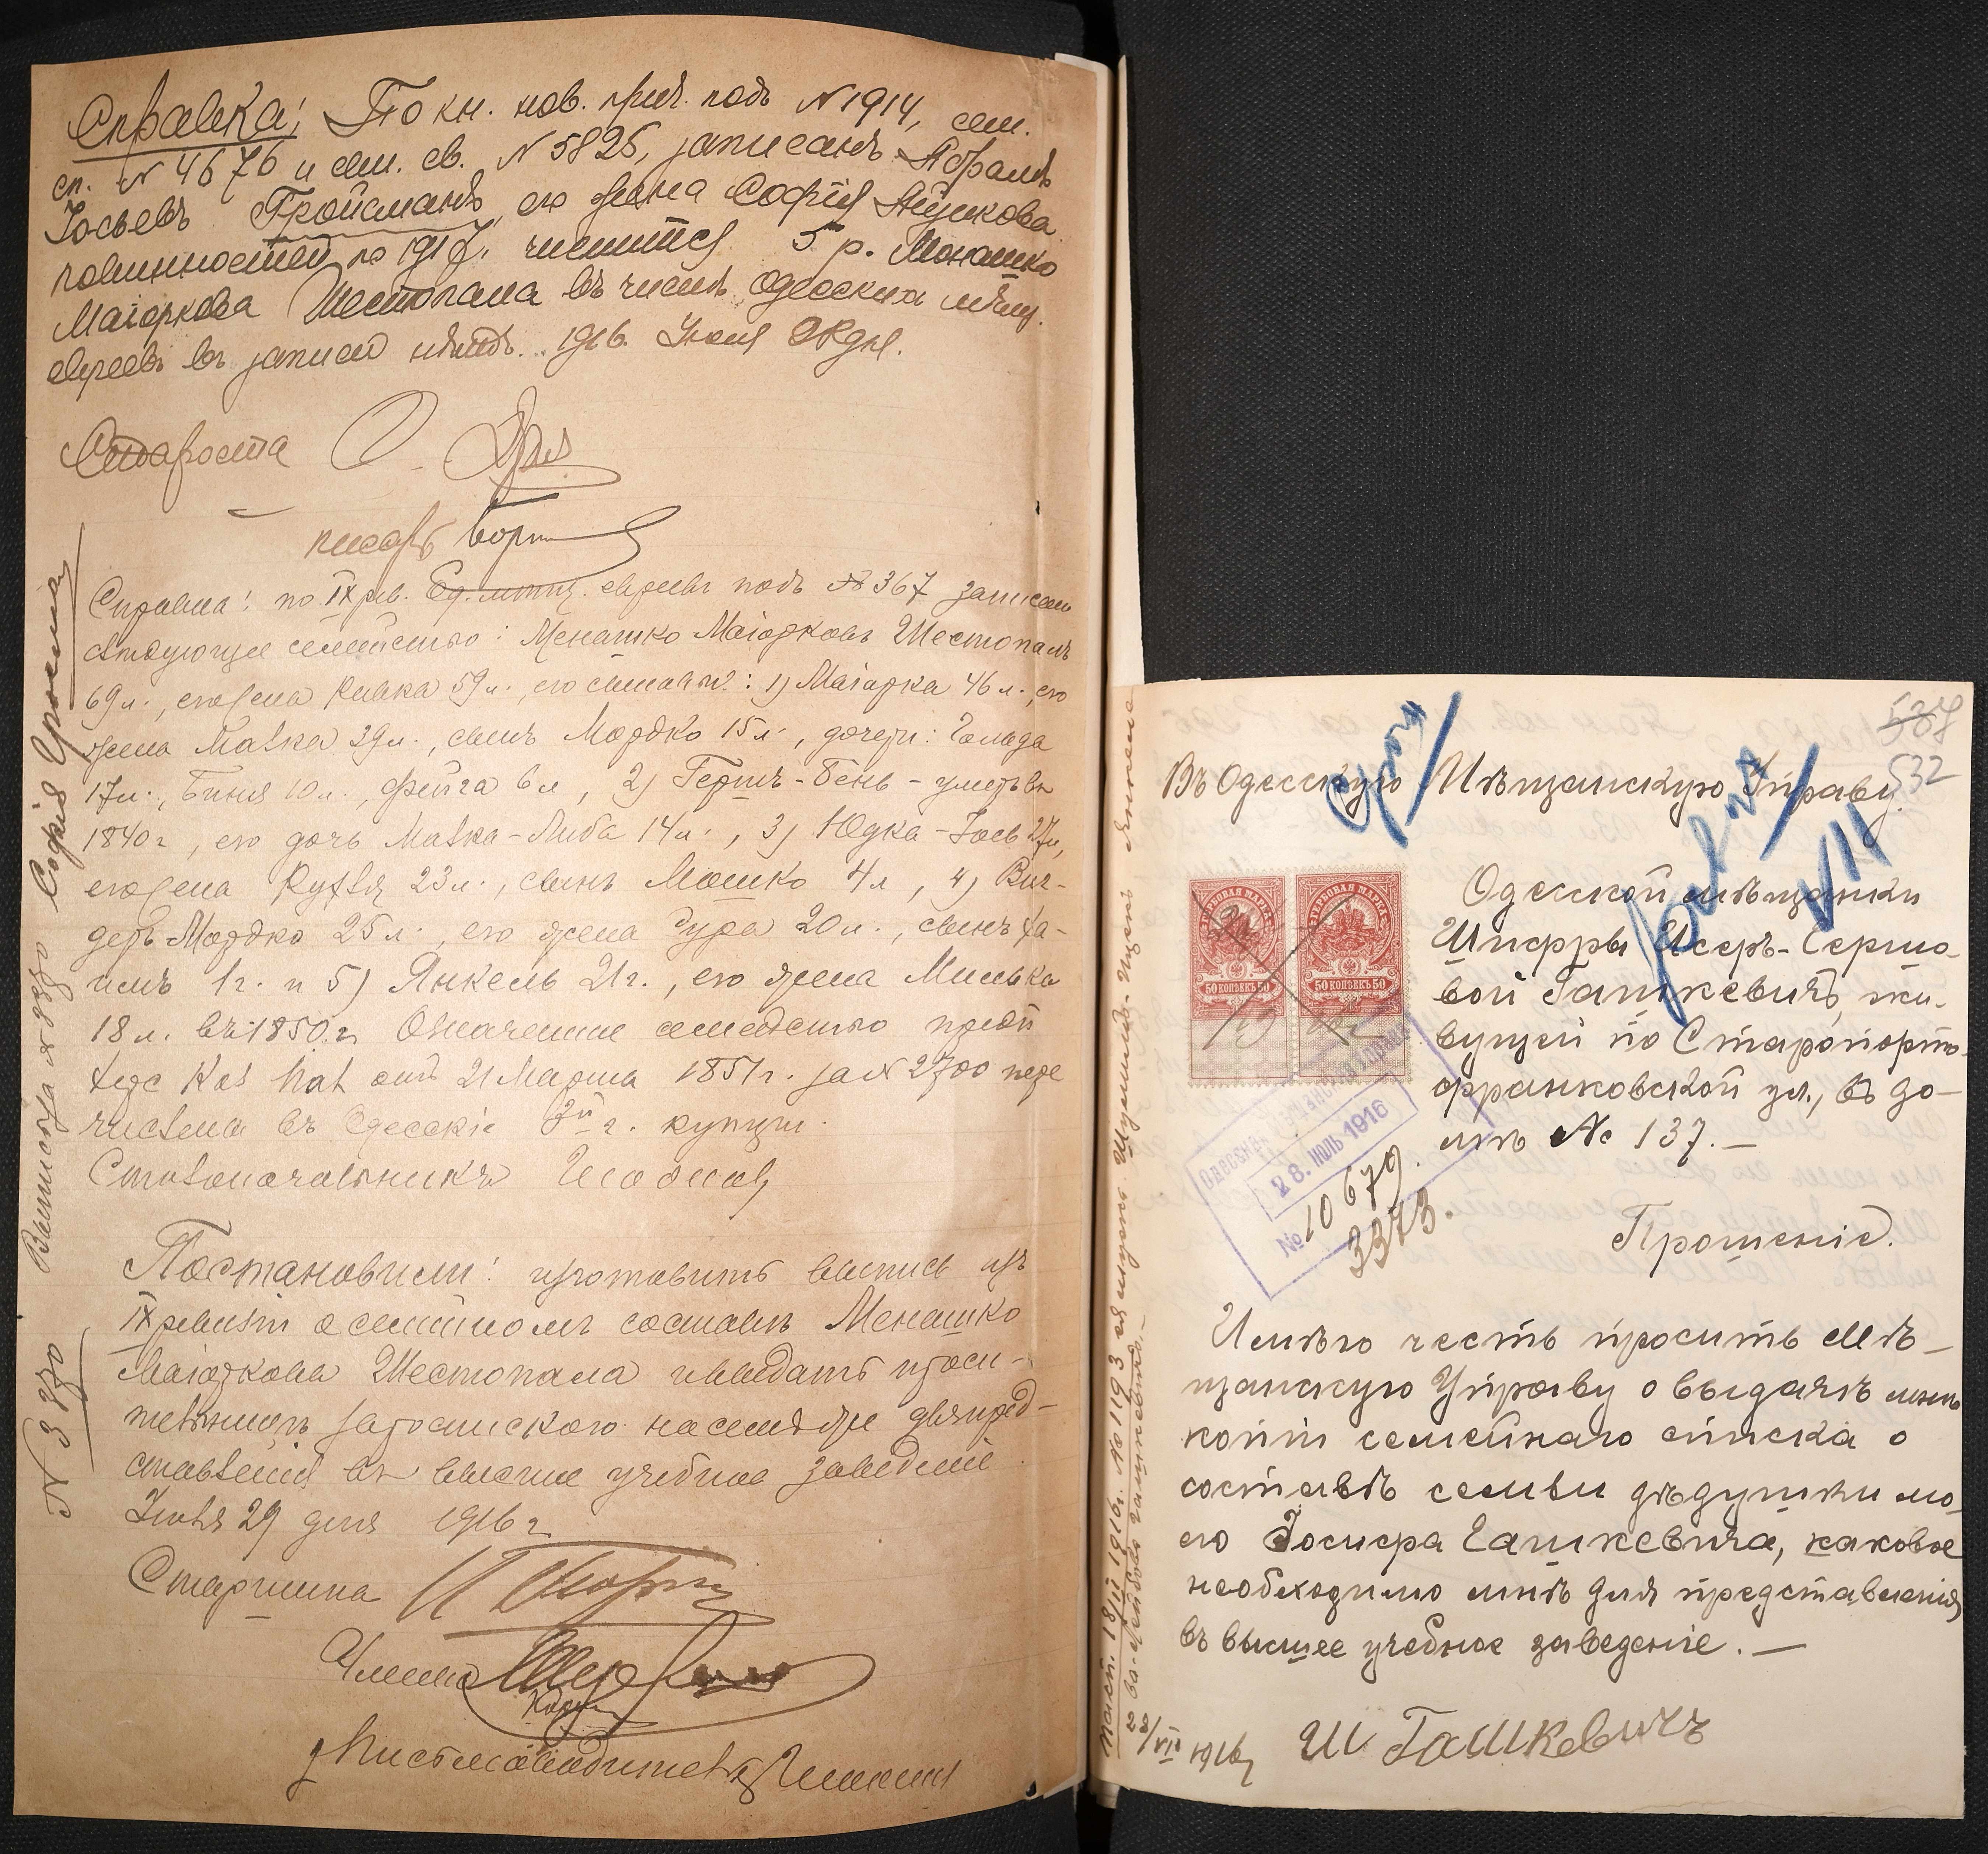 Справка: По кн. нов. прич. подъ № 1914, сем.
сп. № 4676 и сем. св. № 5825, записанъ Абрамъ
Іосьевъ Гройсманъ, его жена Софія Ицкова
повинностей по 1917 г. числится 5 р. Монашко
Маіоркова Шестопала въ числѣ одесскихъ мѣщ.
евреевъ въ записи нѣтъ. 1916. Іюня 28 дня.
Староста
писарь
Справка: по IX рев. Од. мѣщ. евреевъ подъ № 367 записано
слѣдующее семейство: Менашко Маіорковъ Шестопалъ
69 л., его жена Ривка 59 л., его сыновья: 1) Маіорка 46 л., его
жена Малка 39 л., сынъ Мордко 15 л., дочери: Гольда
17 л., Бинья 10 л., Фейга 6 л., 2) Гершъ-Бень - умеръ въ
1840 г., его дочь Малка-Либа 14 л., 3) Юдка-Іось 27 л.,
его жена Рухля 23 л., сынъ Мошко 4 л., 4) Виг-
деръ Мордко 25 л., его жена Сура 20 л., сынъ Ха-
имъ 1 г. и 5) Янкель 21 г., его жена Милька
18 л. въ 1850 г. Означенное семейство предп
Хер. Каз. Пал. отъ 21 Марта 1851 г. за № 2700 пере
числена въ Одесскіе 3й г. купцы.
Столоначальникъ
Постановили: изготовить выпись изъ
IX ревизіи о семейномъ составѣ Менашко
Маіоркова Шестопала и выдать проси-
тельницѣ для пред-
ставленія въ высшее учебное заведеніе.
Іюня 29 дня 1916 г.
Старшина
Члены
Письмоводитель
№ 3370
Выписка № 3370
Софія
537
532
Въ Одесскую Мѣщанскую Управу.
Одесской мѣщанки
Шифры Исеръ-Герше-
вой Гашкевичъ, жи-
вущей по Старопорто-
франковской ул., въ до-
мѣ № 137.—
50 КОПѢЕКЪ 50
50 КОПѢЕКЪ 50
28. ИЮНЬ 1916
№ 10679.
3373.
VII
Прошеніе.
Имѣю честь просить Мѣ-
щанскую Управу о выдачѣ мнѣ
копіи семейнаго списка о
составѣ семьи дѣдушки мо-
его Іосифа Гашкевича, каковое
необходимо мнѣ для представленія
въ высшее учебное заведеніе.—
28/VI 1916 г. Ш Гашкевичъ